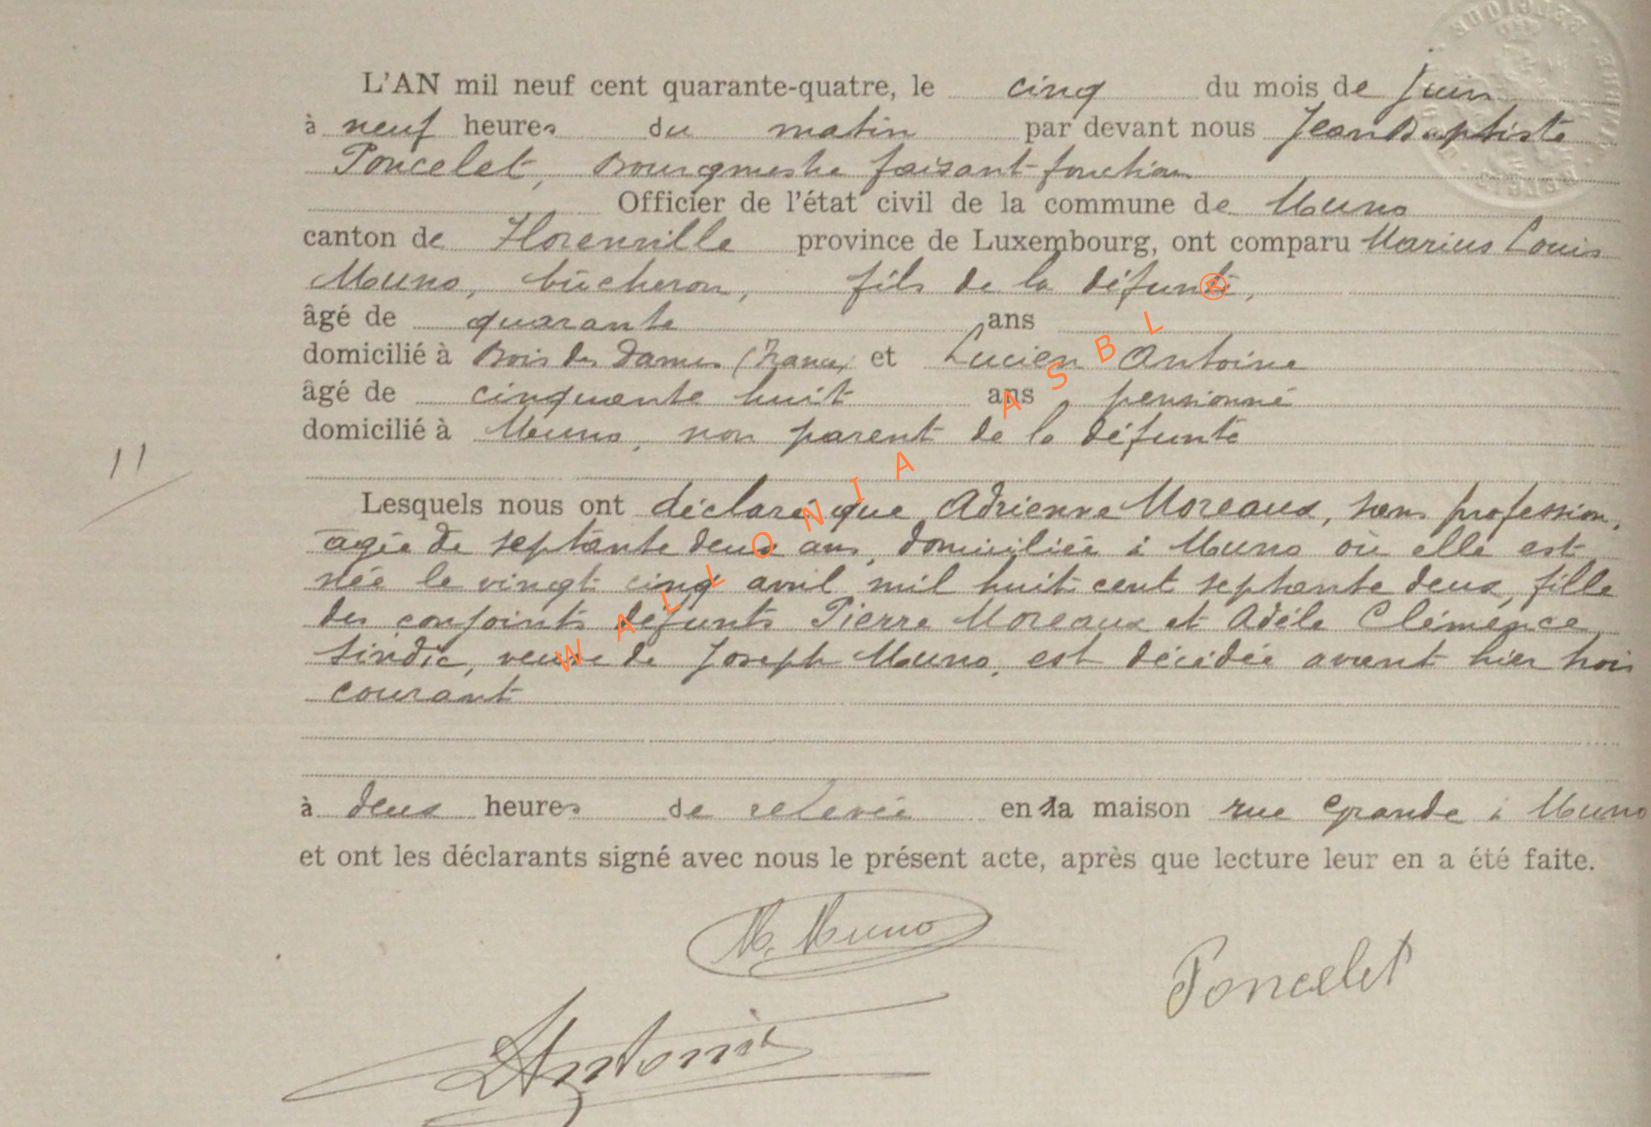 L'AN mil neuf cent quarante-quatre, le cinq du mois de Juin
à neuf heures du matin par devant nous Jean Baptiste
Poncelet, Bourgmestre faisant fonction
Officier de l'état civil de la commune de Muno
canton de Florenville province de Luxembourg, ont comparu Marius Louis
Muno, bûcheron, fils de la défunte,
âgé de quarante ans
domicilié à Bois des Dames (France) et Lucien Antoine
âgé de cinquante huit ans pensionné
domicilié à Muno, non parent de la défunte
11
Lesquels nous ont déclaré que Adrienne Moreaux, sans profession,
agée de septante deux ans, domiciliée à Muno où elle est
née le vingt cinq avril mil huit cent septante deux, fille
des conjoints défunts Pierre Moreaux et Adèle Clémence
Sindic, veuve de Joseph Muno, est décédée avant hier trois
courant
à deux heures de relevée en la maison rue Grande à Muno
et ont les déclarants signé avec nous le présent acte, après que lecture leur en a été faite.
M. Muno
Poncelet
LAntoine
WALLONIA ASBL ®